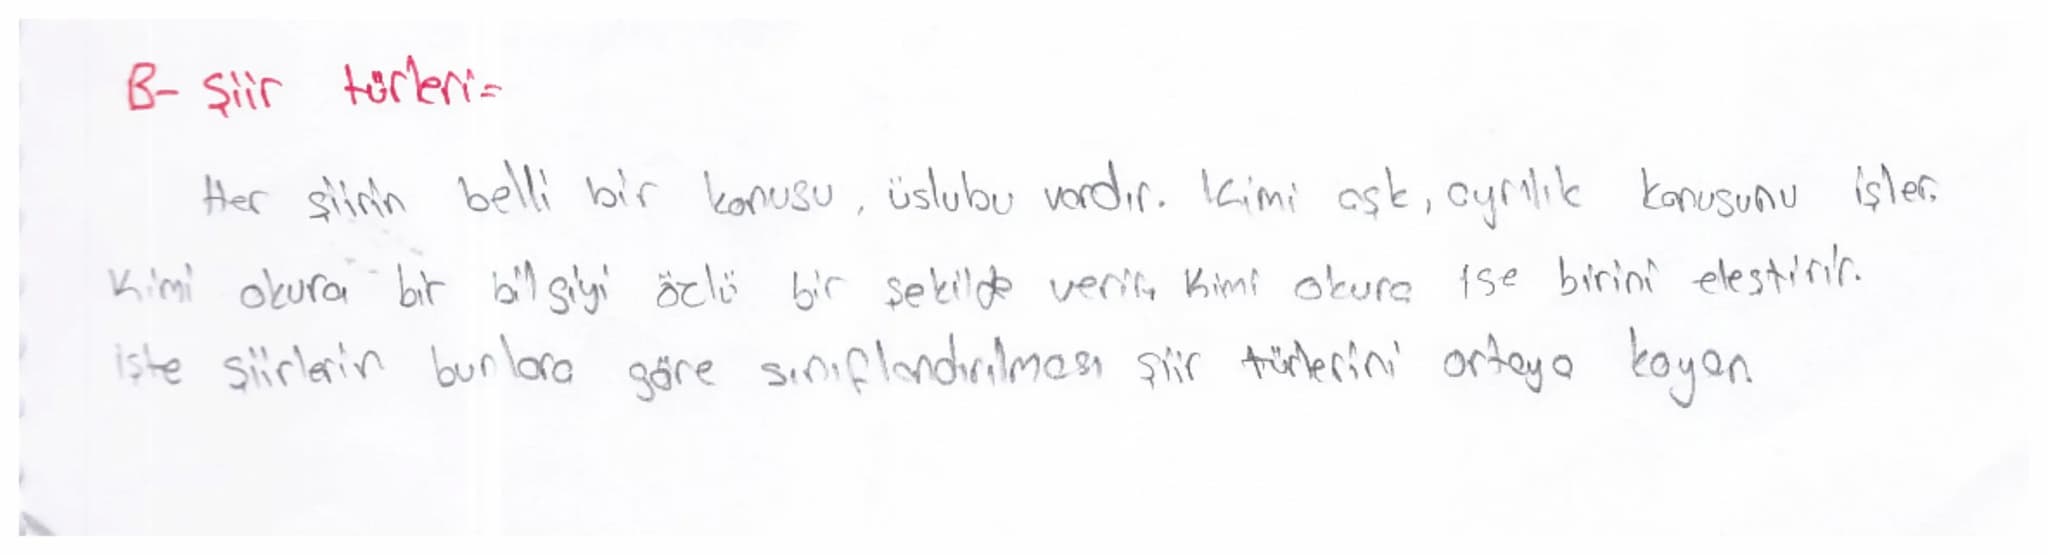 B- Şiir türleri=
Her şiirin belli bir konusu, üslubu vardır. Kimi aşk, ayrılık konusunu işler.
Kimi okura bir bilgiyi özlü bir şekilde verir, kimi okura ise birini eleştirir.
işte şiirlerin bunlara göre sınıflandırılması şiir türlerini ortaya koyar.